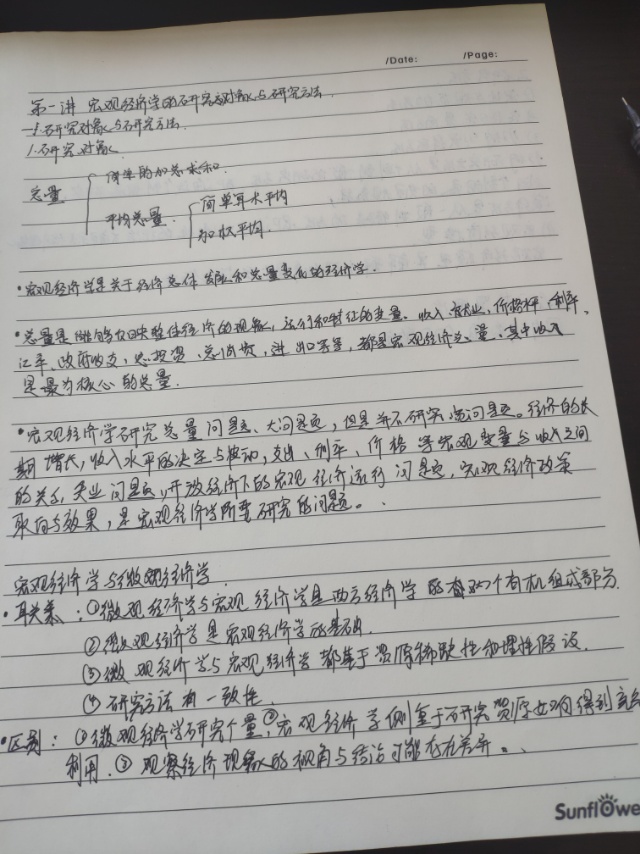 /Date: /Page:
第一讲 宏观经济学的研究对象与研究方法
一.研究对象与研究方法
1.研究对象
总量 简单的加总求和
平均总量 简单算术平均
加权平均.
•宏观经济学是关于经济总体发展和总量变化的经济学.
•总量是能够反映整体经济的现象,运行和特征的变量.收入,就业,价格,利率、
汇率、政府收支,总投资、总消费,进出口等等,都是宏观经济总量.其中收入
是最为核心的总量.
•宏观经济学研究总量问题、大问题,但是并不研究 问题。经济的长
期增长,收入水平的决定与波动,支出、利率、价格等宏观变量与收入之间
的关系,失业问题,开放经济下的宏观经济运行问题,宏观经济政策
取向与效果,是宏观经济学所要研究的问题。
宏观经济学与微观经济学
•联系:①微观经济学与宏观经济学是西方经济学的两个有机组成部分.
②微观经济学是宏观经济学的基础.
③微观经济学与宏观经济学都基于资源稀缺性和理性假设.
④研究方法有一致性.
•区别:①微观经济学研究个量,②宏观经济学侧重于研究资源如何得到充分
利用.③观察经济现象的视角与结论可能存在差异。
Sunflowe